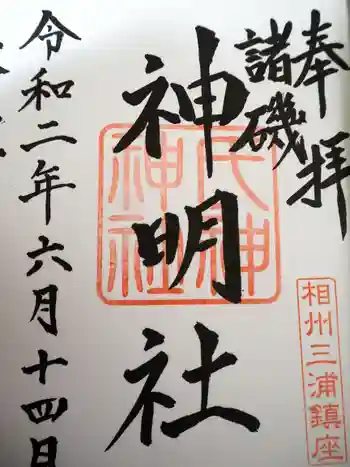 奉拝
諸磯
神明社
氏神
神社
相州三浦鎮座
令和二年六月十四日